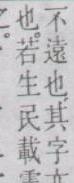 不遠也其字
也。若生民載